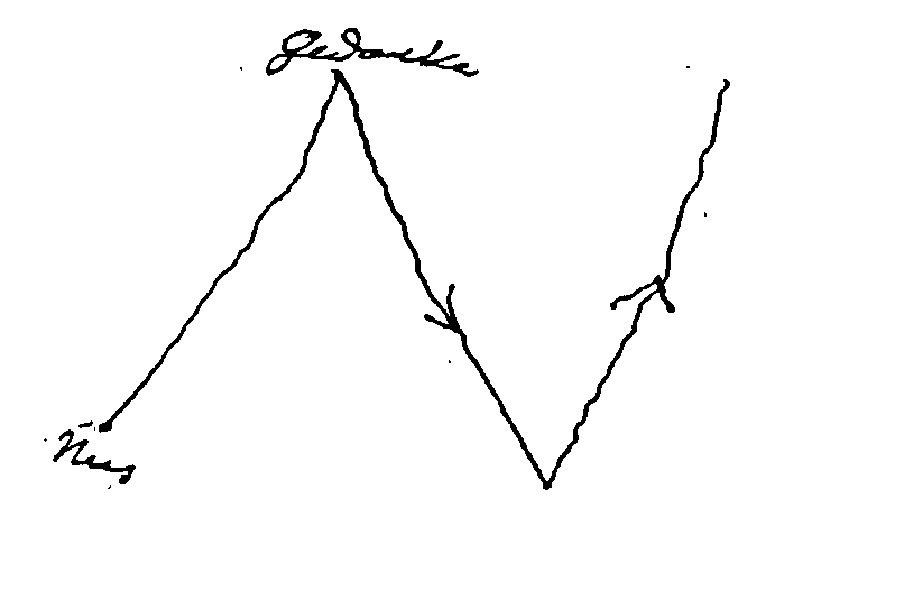 Gedanke
Nus